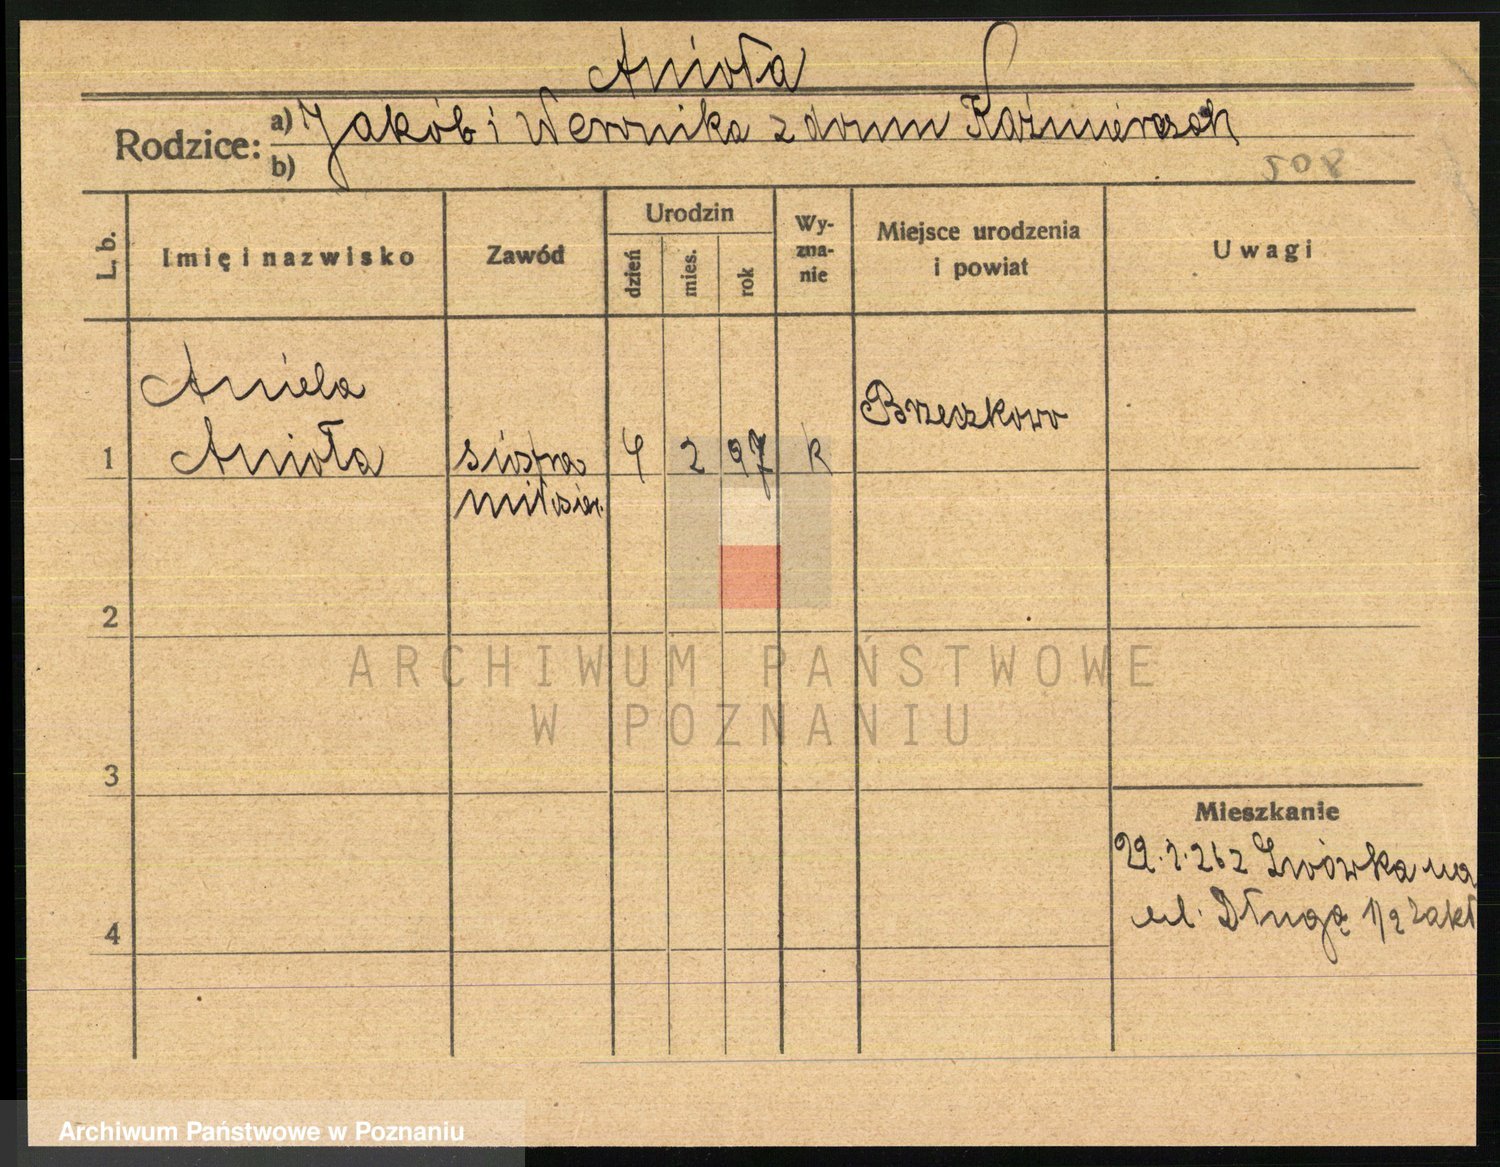 Anioła
Rodzice:
a) Jakób i Weronika z domu Kaźmierczak
b)
208
L. b.
Imię i nazwisko
Zawód
Urodzin
dzień
mies.
rok
Wy-
zna-
nie
Miejsce urodzenia
i powiat
Uwagi
Aniela
1 Anioła siostra 4 2 97 k Brzeczkowo
miłosier.
2
3
4
Mieszkanie
22. 2. 262 Lwówka na
ul. Długą 1/2 Zakł
ARCHIWUM PAŃSTWOWE
W POZNANIU
Archiwum Państwowe w Poznaniu